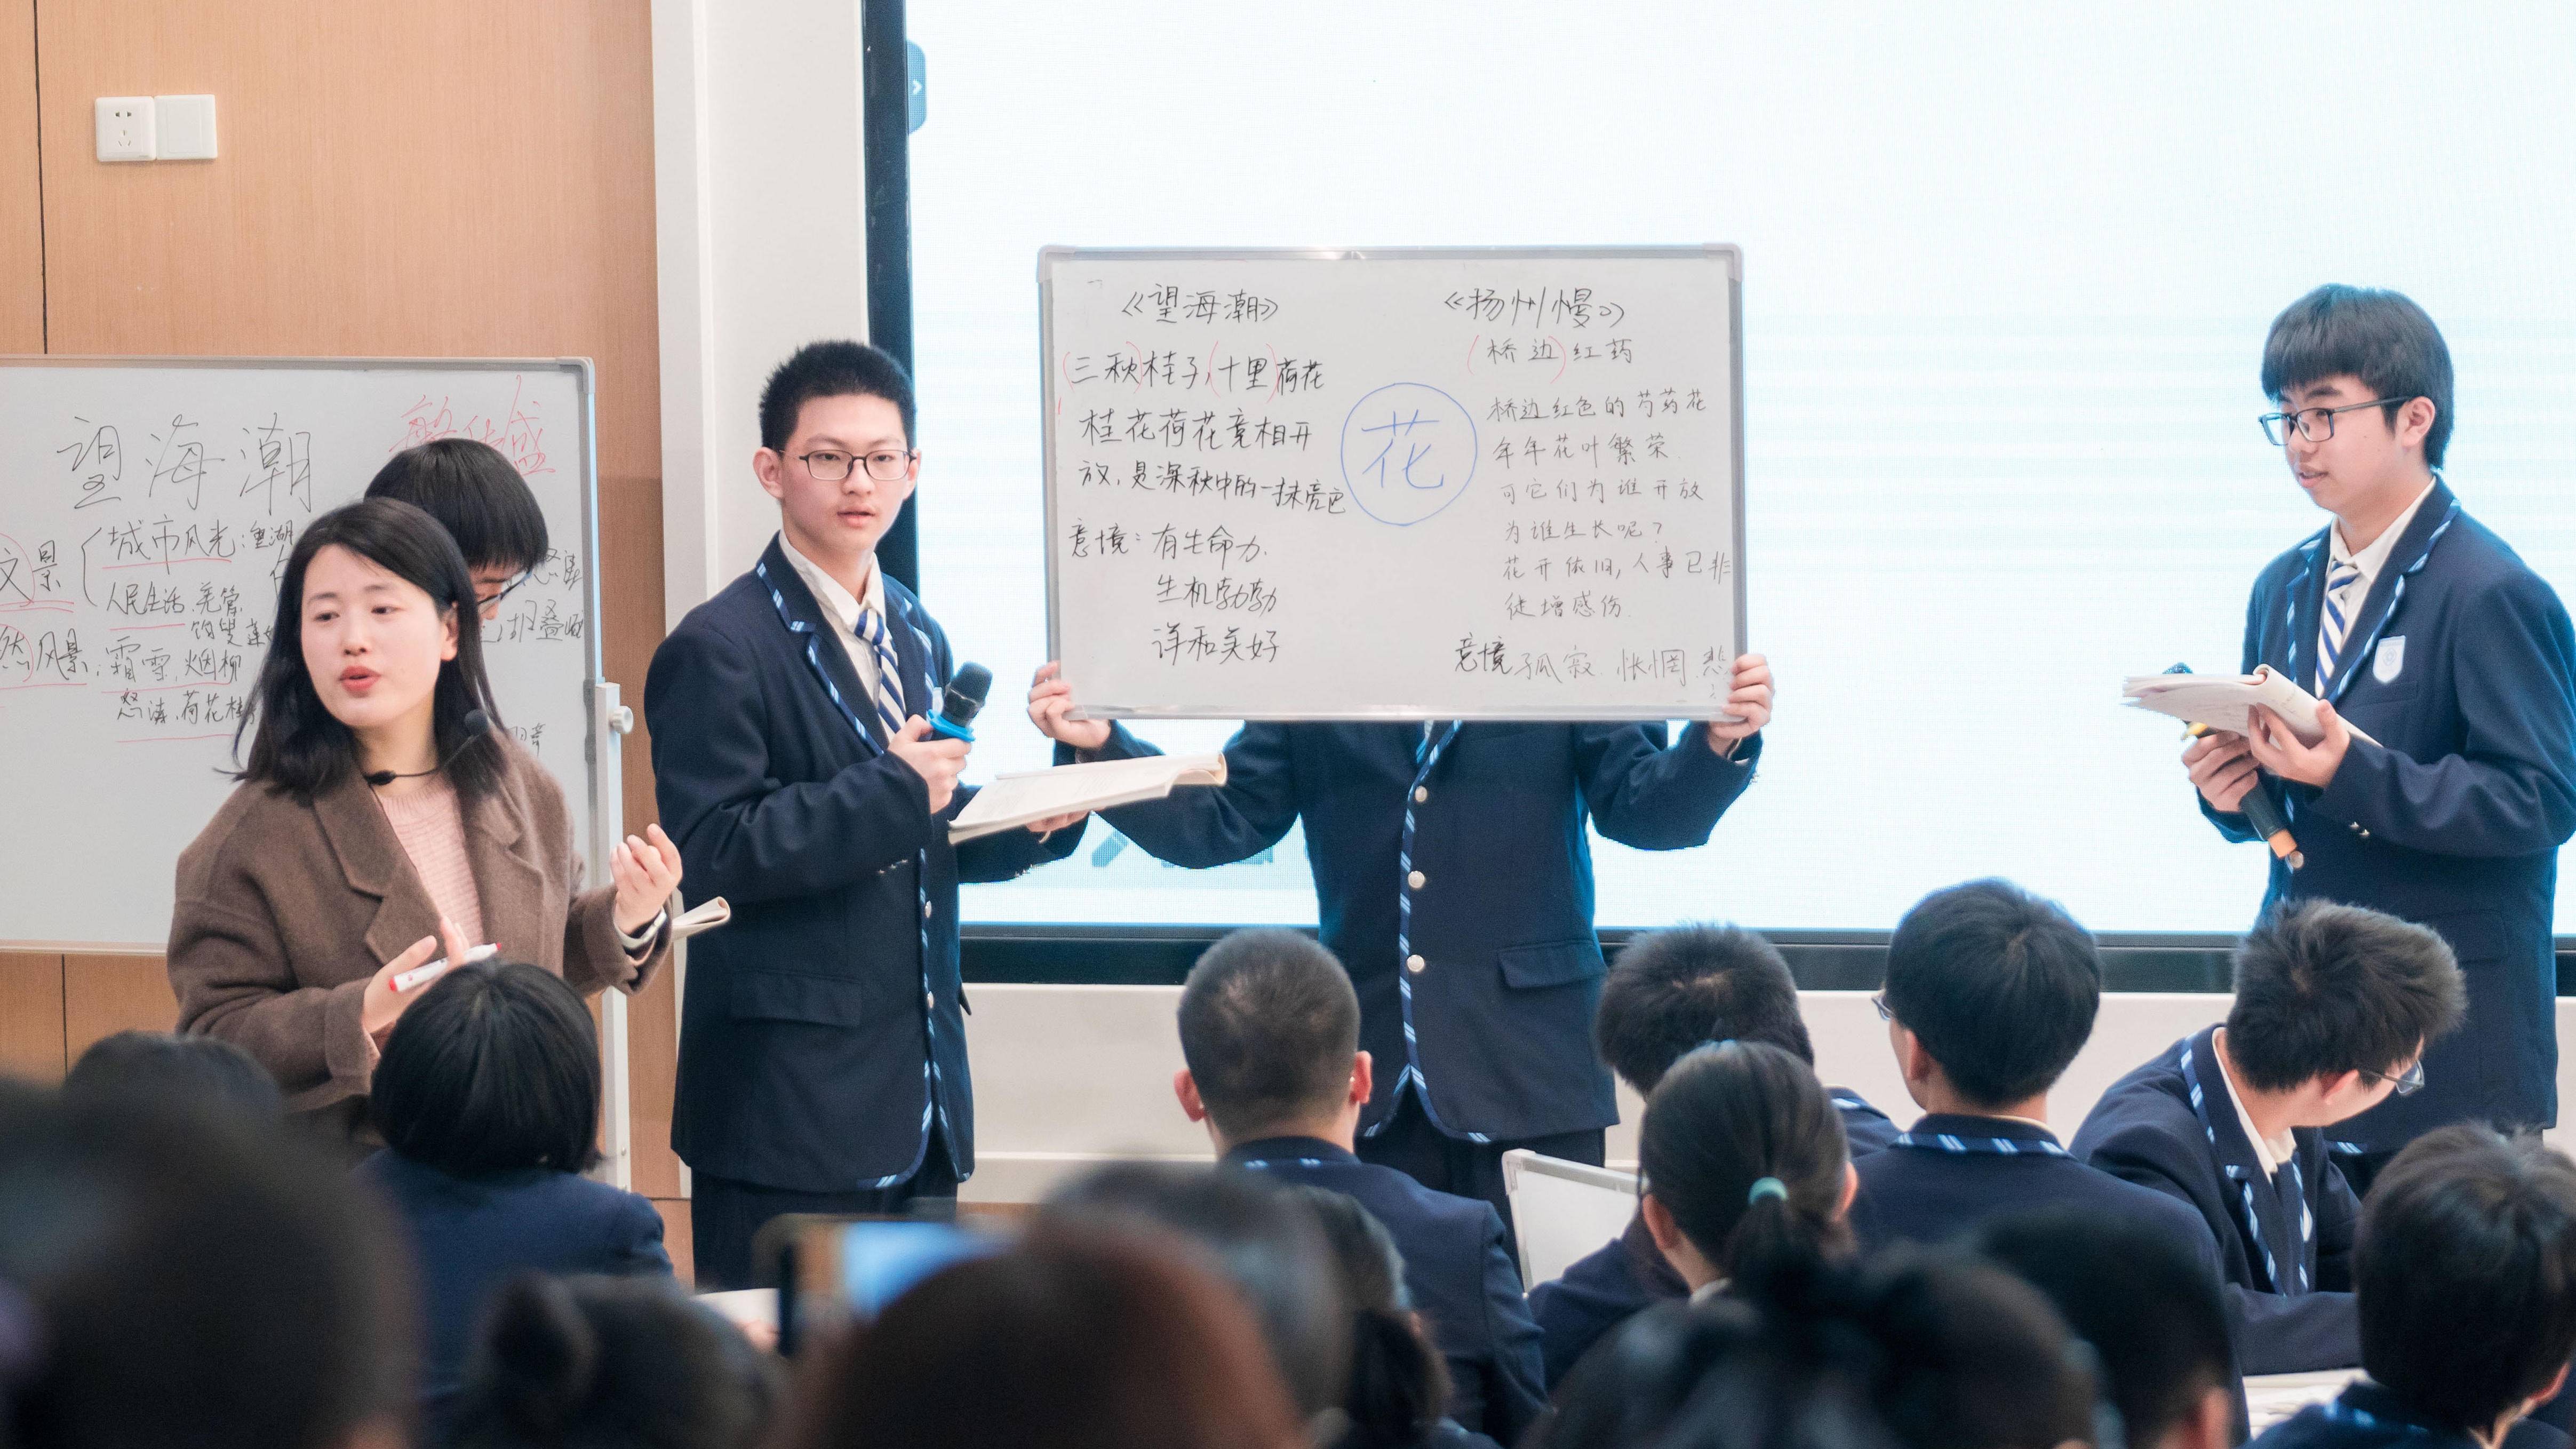 望海潮
繁华盛
景
城市风光：重湖
人民生活：羌管
风景：霜雪，烟柳
怒涛，荷花桂
《望海潮》
（三秋）桂子，（十里）荷花
桂花荷花竞相开
放，是深秋中的一抹亮色
意境：有生命力.
生机勃勃
详和美好
花
《扬州慢》
（桥边）红药
桥边红色的芍药花
年年花叶繁荣.
可它们为谁开放
为谁生长呢？
花开依旧，人事已非
徒增感伤.
意境 孤寂 怅惘 悲